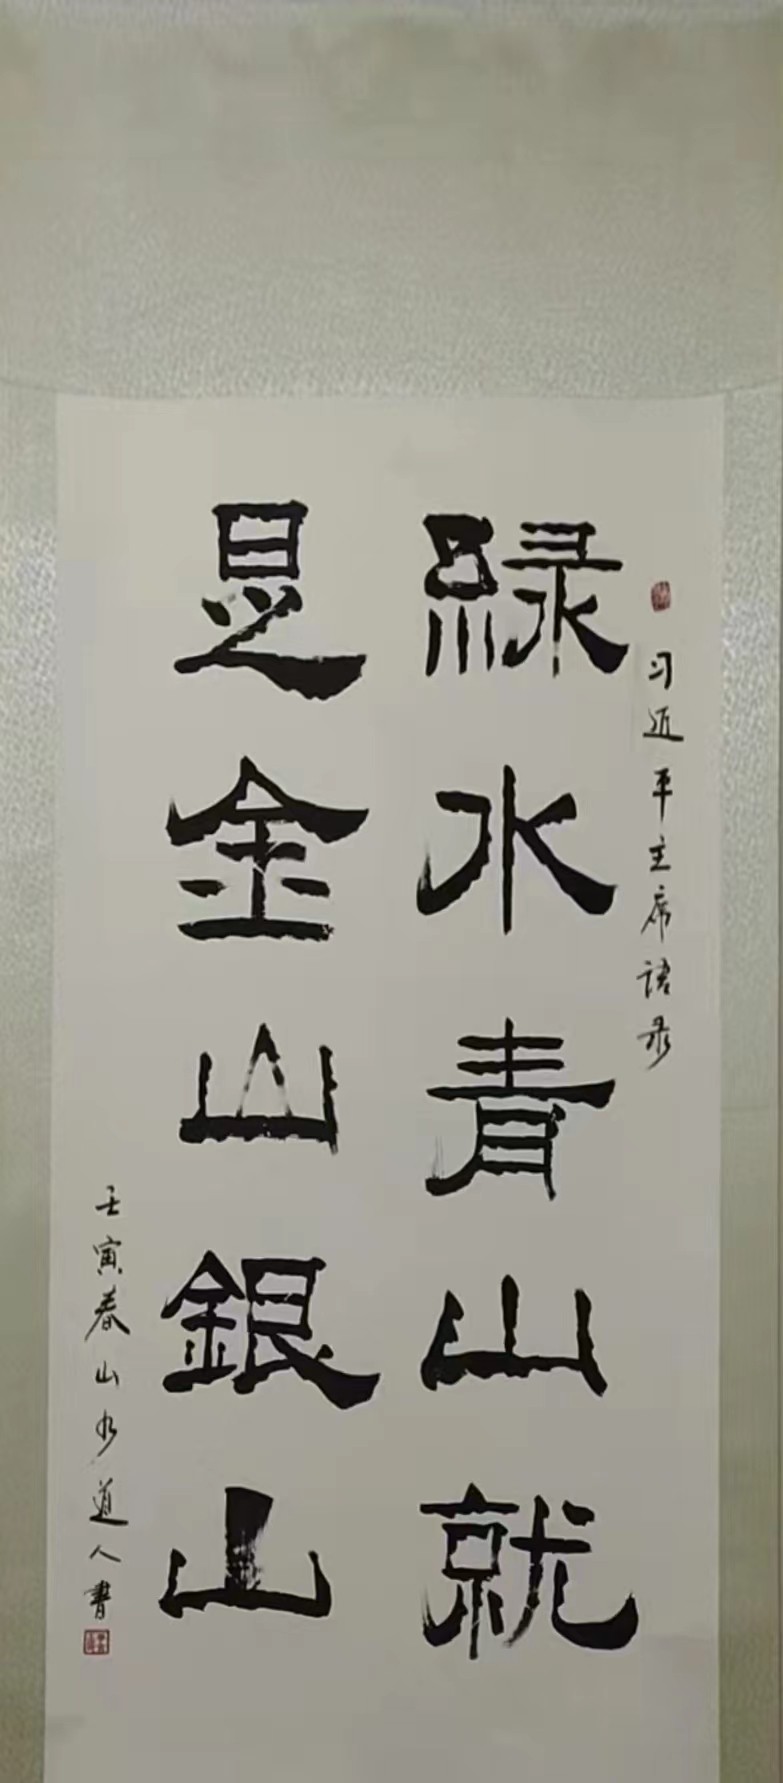 习近平主席语录
緑水青山就
是金山銀山
壬寅春山水道人書